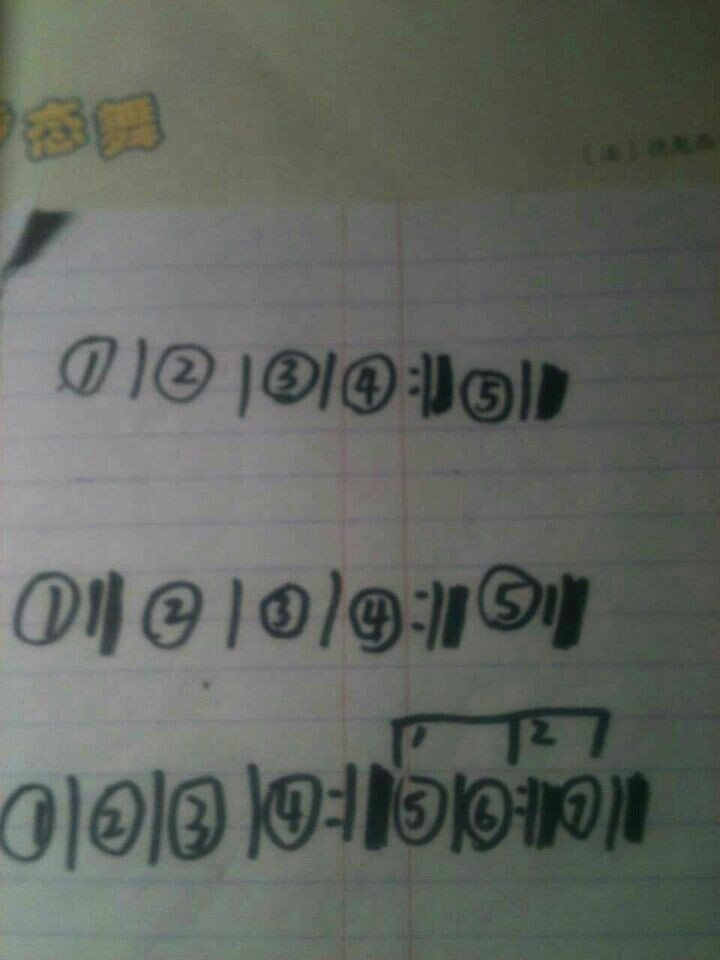 恋舞
① | ② | ③ | ④ :‖ ⑤ ‖
① ‖ ② | ③ | ④ :‖ ⑤ ‖
1 2
① | ② | ③ | ④ :‖ ⑤ | ⑥ :‖ ⑦ ‖